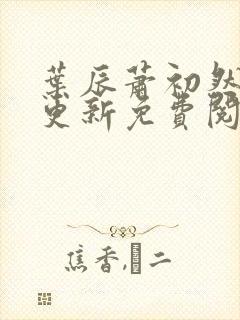 葉辰蕭初然
更新免費閱
焦香,二